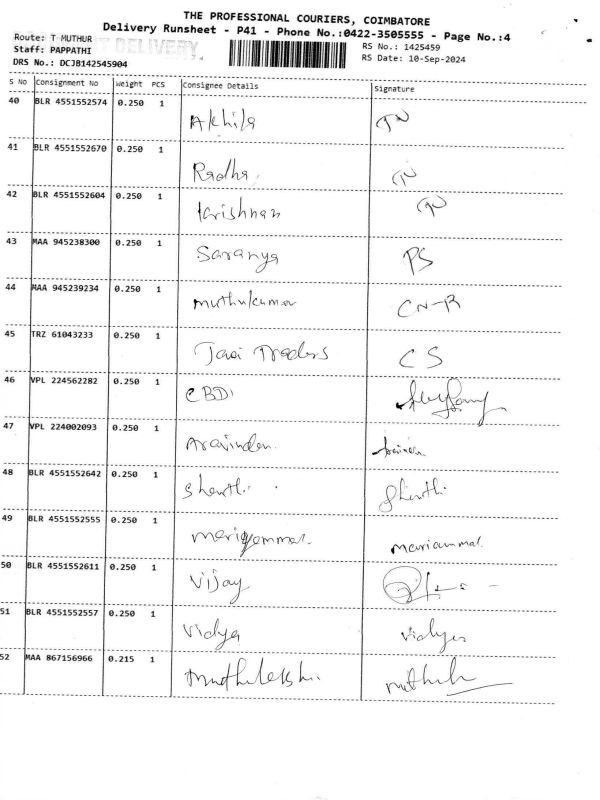 THE PROFESSIONAL COURIERS, COIMBATORE
Delivery Runsheet - P41 - Phone No.:0422-3505555 - Page No.:4
Route: T MUTHUR
RS No.: 1425459
Staff: PAPPATHI
DELIVERY
RS Date: 10-Sep-2024
DRS No.: DCJB142545904
S No Consignment No Weight PCS Consignee Details Signature
40 BLR 4551552574 0.250 1 Akhila TN
41 BLR 4551552670 0.250 1 Radha
42 BLR 4551552604 0.250 1 krishnan
43 MAA 945238300 0.250 1 Saranya PS
44 MAA 945239234 0.250 1 muthukumar CN-R
45 TRZ 61043233 0.250 1 Traders CS
46 VPL 224562282 0.250 1 CBDI
47 VPL 224002093 0.250 1 Aravindan
48 BLR 4551552642 0.250 1 Shanthi Shanthi
49 BLR 4551552555 0.250 1 mariyammal. mariammal.
50 BLR 4551552611 0.250 1 Vijay
51 BLR 4551552557 0.250 1 Vidya Vidya
52 MAA 867156966 0.215 1 muthulakshi.